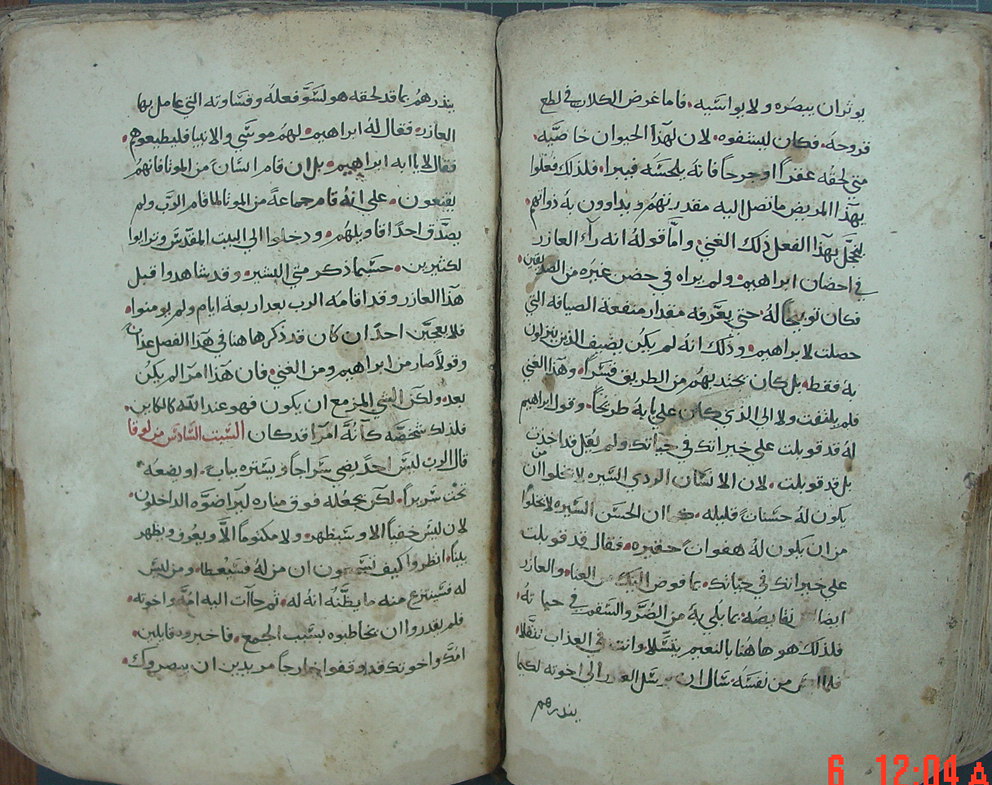 يوثر ان يبصره ولا يواسيه. فاما غرض الكلاب في لطع
قروحه. فكان ليشفوه. لان لهذا الحيوان خاصيه.
متى لحقه عقراً او جرحاً فانه يلحسه فيبرا. فلذلك فعلوا
بهذا المريض ما تصل اليه مقدرتهم ويداوون به ذواتهم.
ليخجل بهذا الفعل ذلك الغني. واما قوله انه رأى العازر
في احضان ابراهيم. ولم يراه في حضن غيره من الصديقين.
فكان توبيخاً له. حتى يعرفه مقدار منفعة الضيافه التي
حصلت لابراهيم. وذلك انه لم يكن يضيف الذين ينزلون
به فقط. بل كان يجتذبهم من الطريق قسراً. وهذا الغني
فلم يلتفت ولا الى الذي كان على بابه طريحاً. وقول ابراهيم
له قد قوبلت على خيراتك في حياتك ولم يقل قد اخذت
بل قد قوبلت. لان الانسان الردي السيره لا يخلوا من ان
يكون له حسنات قليله. كما ان الحسن السيره لا يخلوا
من ان يكون له هفوات حقيره. فقال قد قوبلت
على خيراتك في حياتك. بما فوض اليك من الغنا. والعازر
ايضا نقايصه. بما بلي به من الضر والسقم في حياته.
فلذلك هو هاهنا بالنعيم يتسلا. وانت في العذاب تتقلا.
فلما من نفسه. سال ان يرسل العازر الى اخوته لكيما
ينذرهم
ينذرهم بما قد لحقه هو لسو فعله وقساوته التي عامل بها
العازر. فقال له ابراهيم. لهم موسى والانبيا فليطيعوهم.
فقال لا يا ابه ابراهيم. بل ان قام انسان من الموتا فانهم
يقنعون. على انه قام جماعة من الموتا لما قام الرب ولم
يصدق احداً اقاويلهم. ودخلوا الى البيت المقدس وترايوا
لكثيرين. حسبما ذكر متى البشير. وقد شاهدوا قبل
هذا العازر وقد اقامه الرب بعد اربعة ايام ولم يومنوا.
فلا يعجبن احداً ان كان قد ذكر هاهنا في هذا الفصل عذاب
وقولاً صار من ابراهيم ومن الغني. فان هذا امراً لم يكن
بعد. ولكن الشي المزمع ان يكون فهو عند الله كالكاين.
فلذلك شخصه كأنه امراً قد كان السبت السادس من لوقا
قال الرب ليس احد يضي سراجاً ويستره بباب. او يضعه
تحت سريراً. لكن يجعله فوق مناره ليرا ضوه الداخلون.
لان ليس خفياً الا وسيظهر. ولا مكتوماً الا ويعرف ويظهر
بيناً. انظروا كيف تسمعون ان من له فسيعطا. ومن ليس
له فسينتزع منه ما يظنه انه له. ثم جاات اليه امه واخوته.
فلم يقدروا ان يخاطبوه بسبب الجمع. فاخبروه قايلين.
امك واخوتك قد وقفوا خارجاً مريدين ان يبصروك.
6 12:04